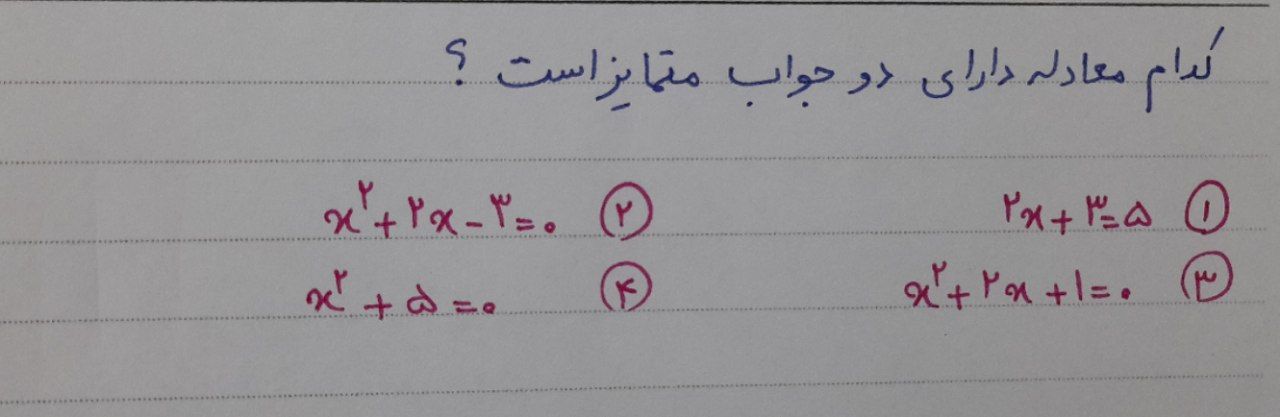 کدام معادله دارای دو جواب متمایز است ؟
① ۲x + ۳ = ۵ ② x² + ۲x - ۳ = ۰
③ x² + ۲x + ۱ = ۰ ④ x² + ۵ = ۰